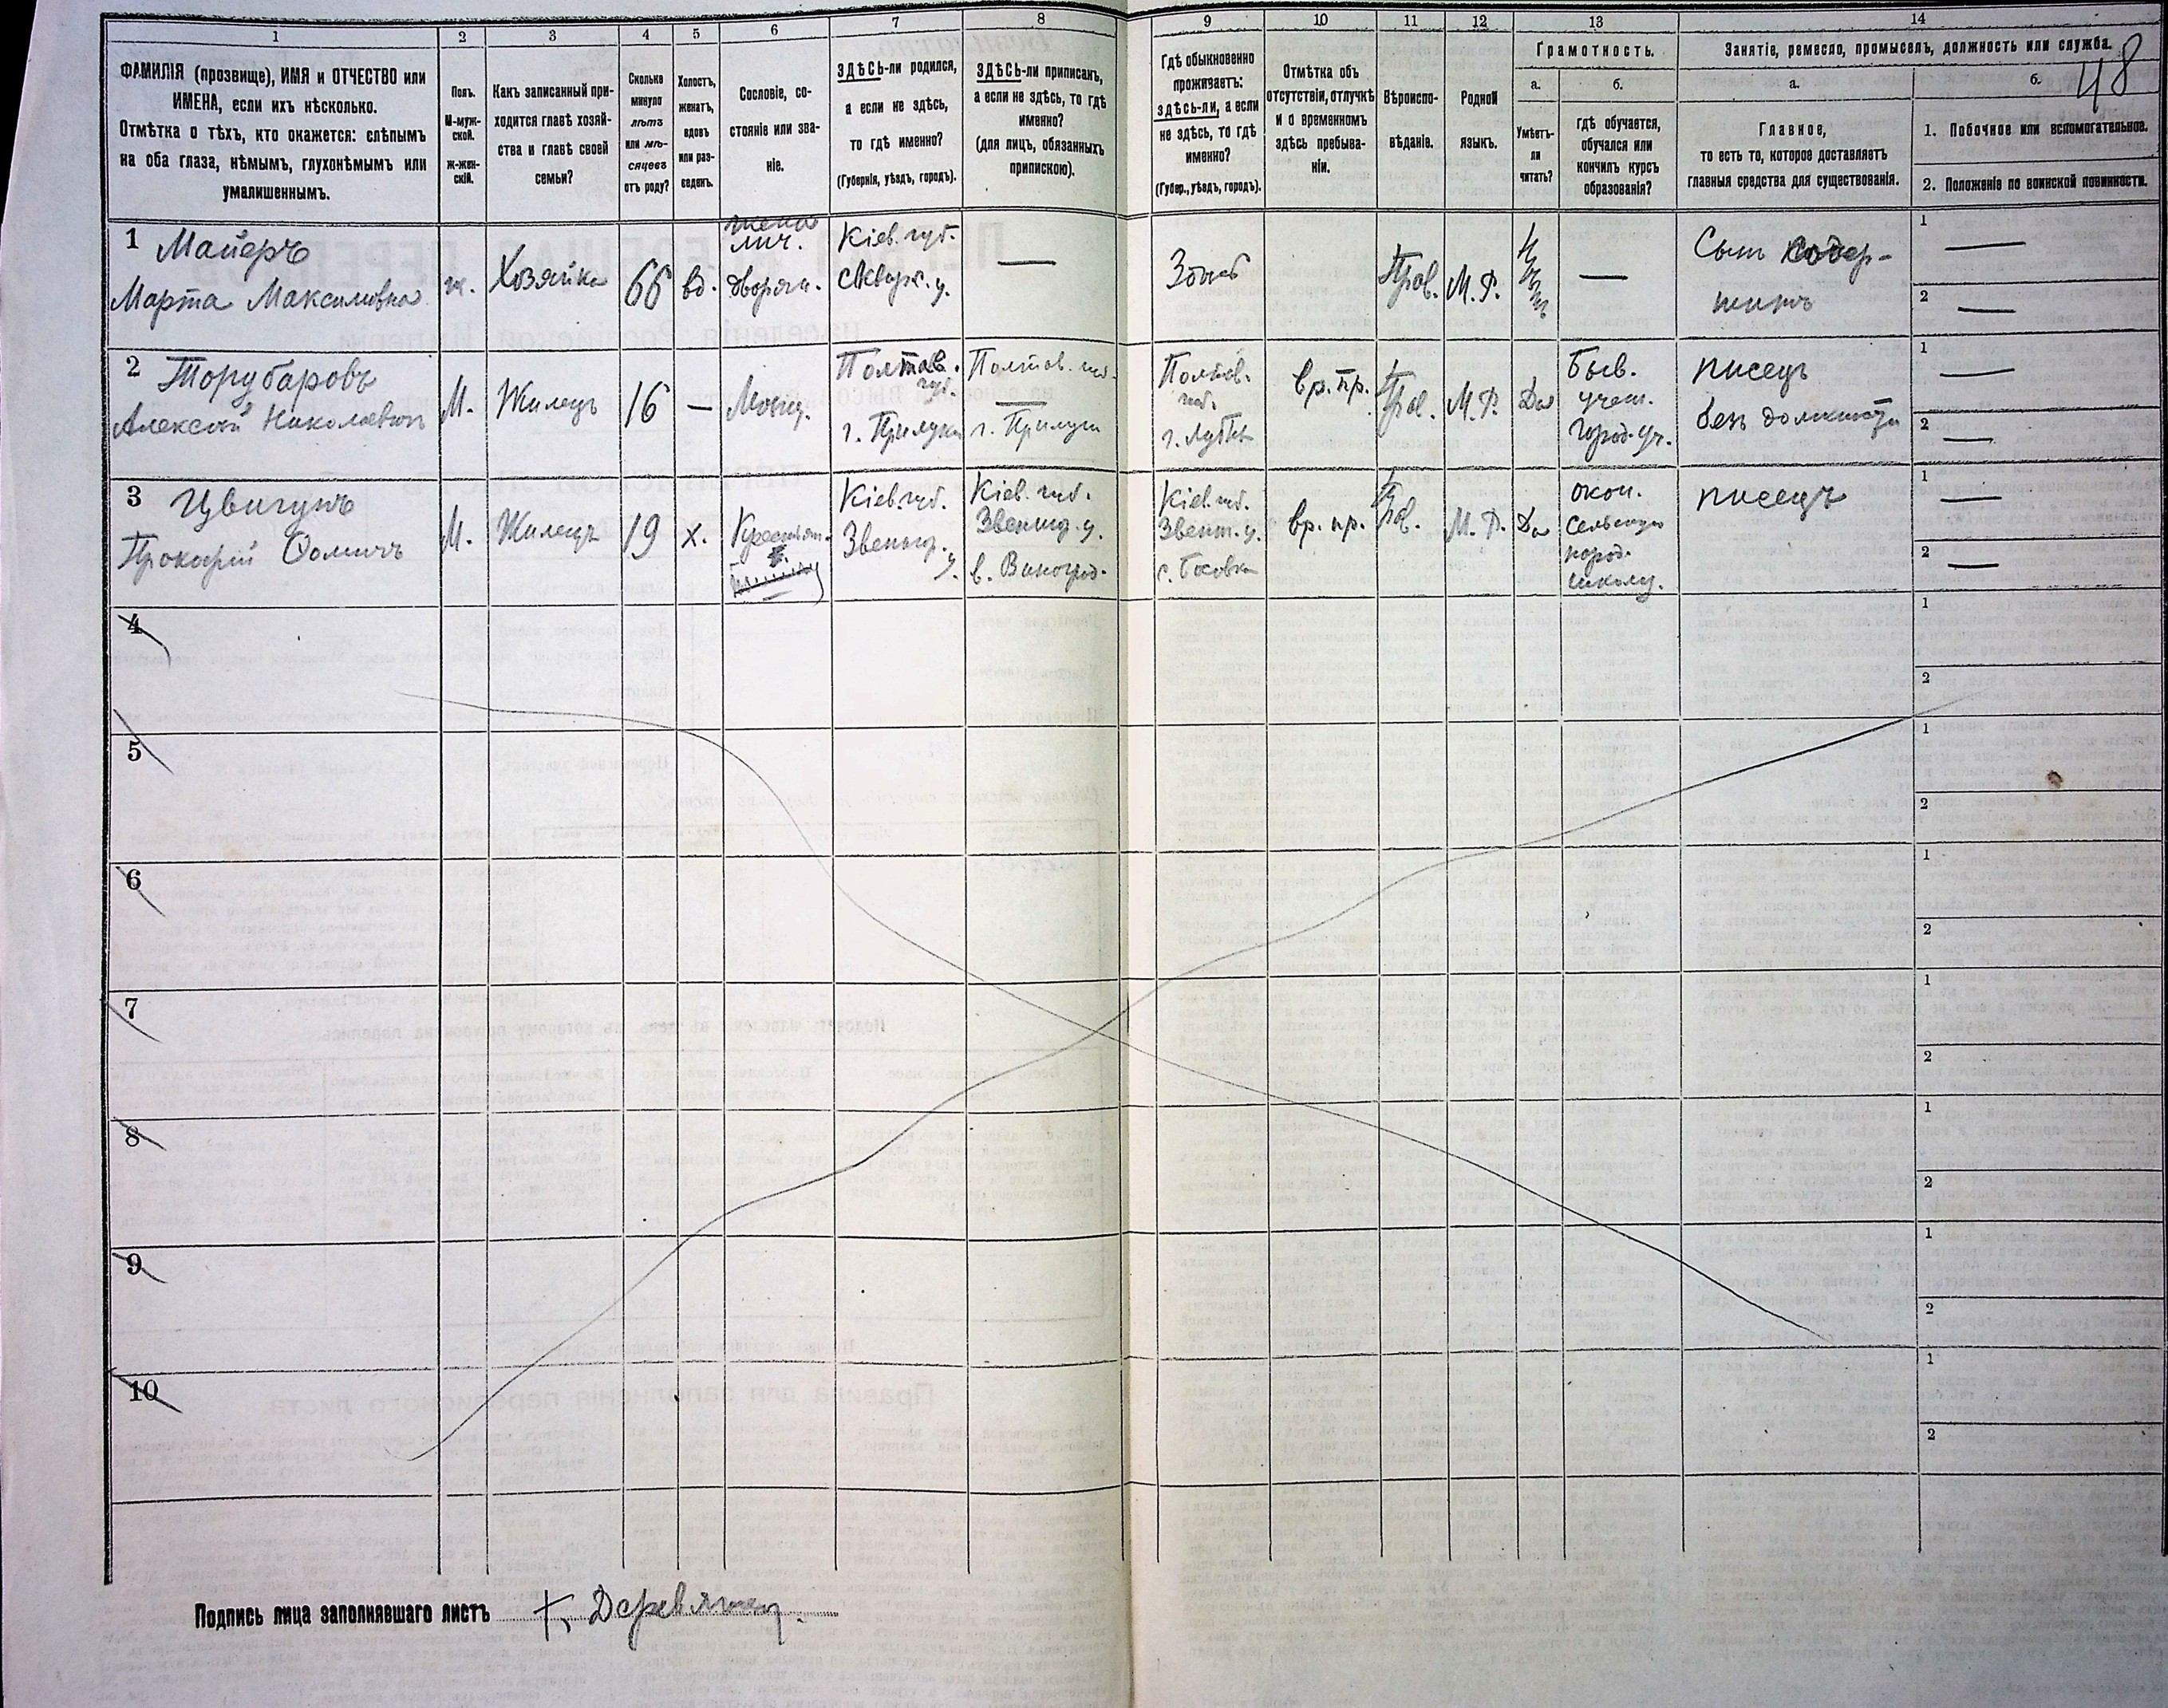 1
2
3
4
5
6
7
8
9
10
11
12
13
14
ФАМИЛІЯ (прозвище), ИМЯ и ОТЧЕСТВО или
ИМЕНА, если ихъ нѣсколько.
Отмѣтка о тѣхъ, кто окажется: слѣпымъ
на оба глаза, нѣмымъ, глухонѣмымъ или
умалишеннымъ.
Полъ.
М-муж-
ской.
ж-жен-
скій.
Какъ записанный при-
ходится главѣ хозяй-
ства и главѣ своей
семьи?
Сколько
минуло
лѣтъ
или мѣ-
сяцевъ
отъ роду?
Холостъ,
женатъ,
вдовъ
или раз-
веденъ.
Сословіе, со-
стояніе или зва-
ніе.
ЗДѢСЬ-ли родился,
а если не здѣсь,
то гдѣ именно?
(Губернія, уѣздъ, городъ).
ЗДѢСЬ-ли приписанъ,
а если не здѣсь, то гдѣ
именно?
(для лицъ, обязанныхъ
припискою).
Гдѣ обыкновенно
проживаетъ:
ЗДѢСЬ-ли, а если
не здѣсь, то гдѣ
именно?
(Губер., уѣздъ, городъ).
Отмѣтка объ
отсутствіи, отлучкѣ
и о временномъ
здѣсь пребыва-
ніи.
Вѣроиспо-
вѣданіе.
Родной
языкъ.
Грамотность.
а.
Умѣетъ-
ли
читать?
б.
гдѣ обучается,
обучался или
кончилъ курсъ
образованія?
Занятіе, ремесло, промыселъ, должность или служба.
48
а.
Главное,
то есть то, которое доставляетъ
главныя средства для существованія.
б.
1. Побочное или вспомогательное.
2. Положеніе по воинской повинности.
1 Майеръ
Марта Максимовна
ж.
Хозяйка
66
вд.
жена
лич.
дворян.
Кіев. губ.
Сквирк. у.
—
Здѣсь
Прав.
М. Р.
—
Сынъ содер-
житъ
1 —
2 —
2 Торубаровъ
Алексѣй Николаевичъ
М.
Жилецъ
16
—
Мѣщ.
Полтав.
губ.
г. Прилуки
Полтав. губ.
г. Прилуки
Полтав.
губ.
г. Лубны
вр. пр.
Прав.
М. Р.
Да
Быв.
учен.
Город. уч.
писецъ
безъ должности
1 —
2 —
3 Цвигунъ
Прокофій Ѳомичъ
М.
Жилецъ
19
х.
Крестьян.
Кіев. губ.
Звениг.
у.
Кіев. губ.
Звениг. у.
в. Виноград.
Кіев. губ.
Звениг. у.
с. Босовка
вр. пр.
Прав.
М. Р.
Да
окон.
сельскую
народ.
школу.
писецъ
1 —
2 —
4
1
2
5
1
2
6
1
2
7
1
2
8
1
2
9
1
2
10
1
2
Подпись лица заполнявшаго листъ